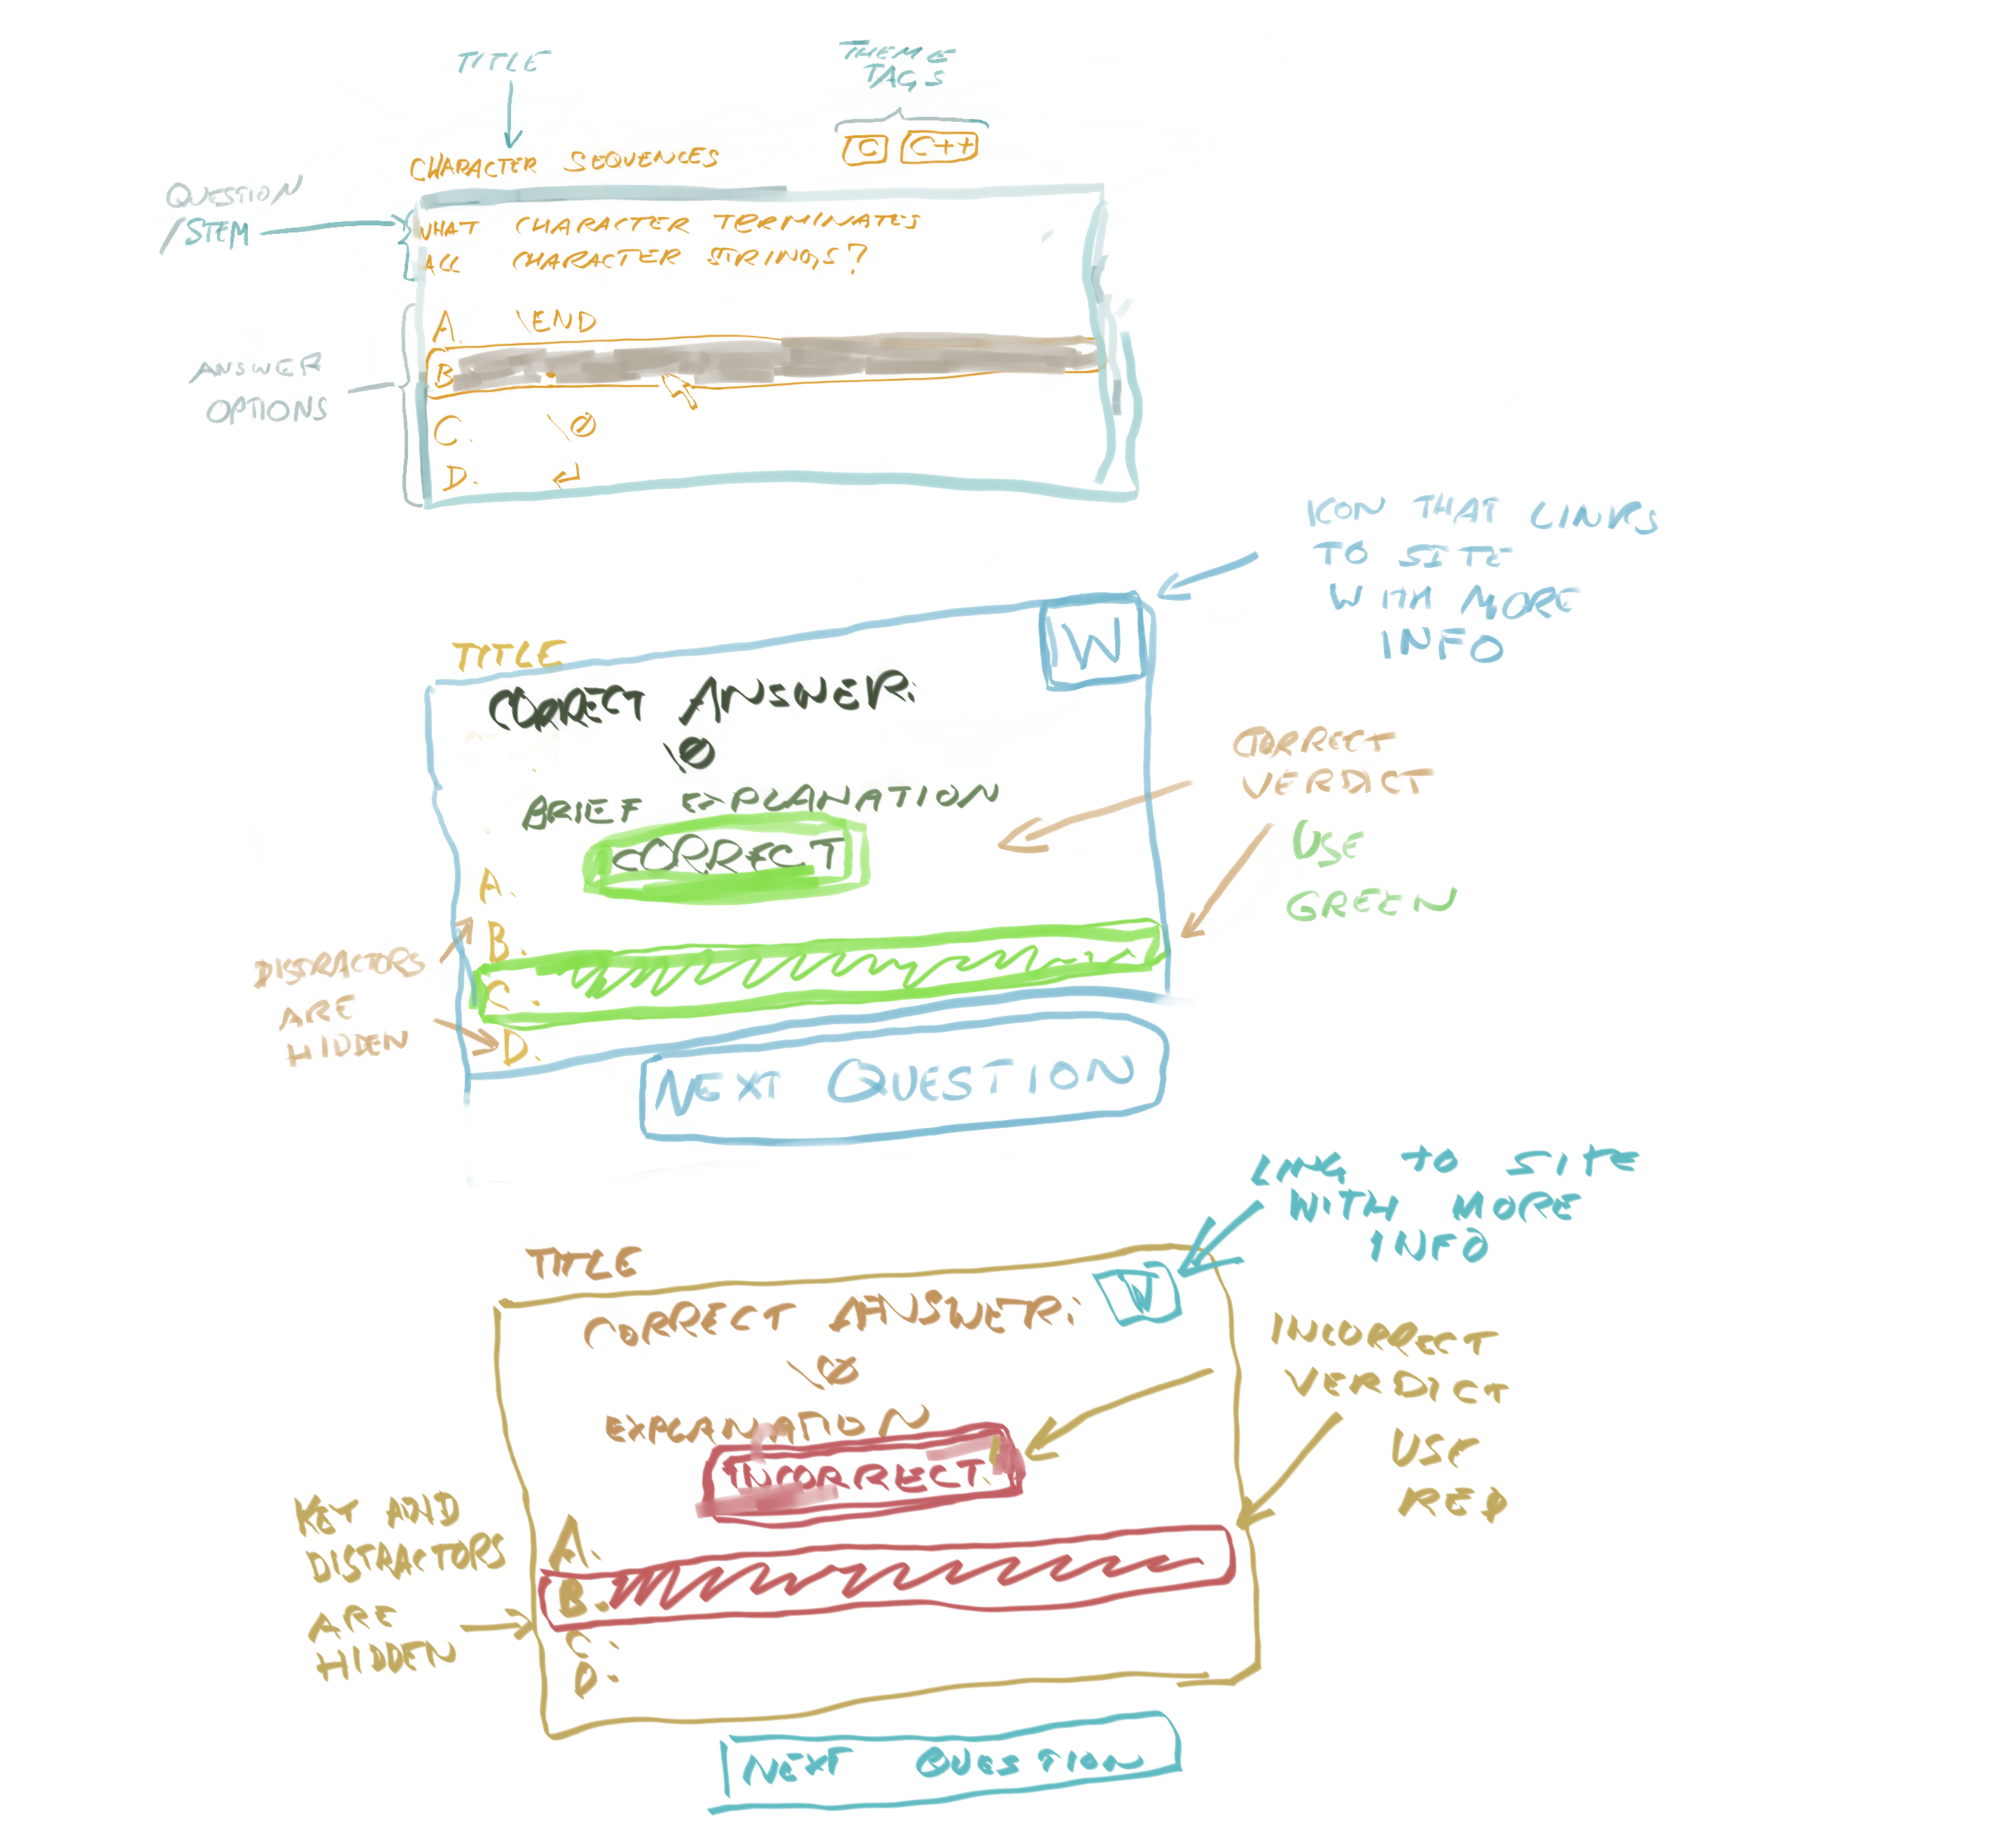 TITLE
THEME
TAGS
C C++
CHARACTER SEQUENCES
QUESTION
/STEM
WHAT CHARACTER TERMINATES
ALL CHARACTER STRINGS?
ANSWER
OPTIONS
A. \END
B
C. \0
D. ↵
ICON THAT LINKS
TO SITE
WITH MORE
INFO
TITLE
W
CORRECT ANSWER:
\0
BRIEF EXPLANATION
CORRECT
CORRECT
VERDICT
USE
GREEN
A.
B.
C.
D.
DISTRACTORS
ARE
HIDDEN
NEXT QUESTION
LINK TO SITE
WITH MORE
INFO
TITLE
W
CORRECT ANSWER:
\0
EXPLANATION
INCORRECT
INCORRECT
VERDICT
USE
RED
KEY AND
DISTRACTORS
ARE
HIDDEN
A.
B.
C.
D.
NEXT QUESTION